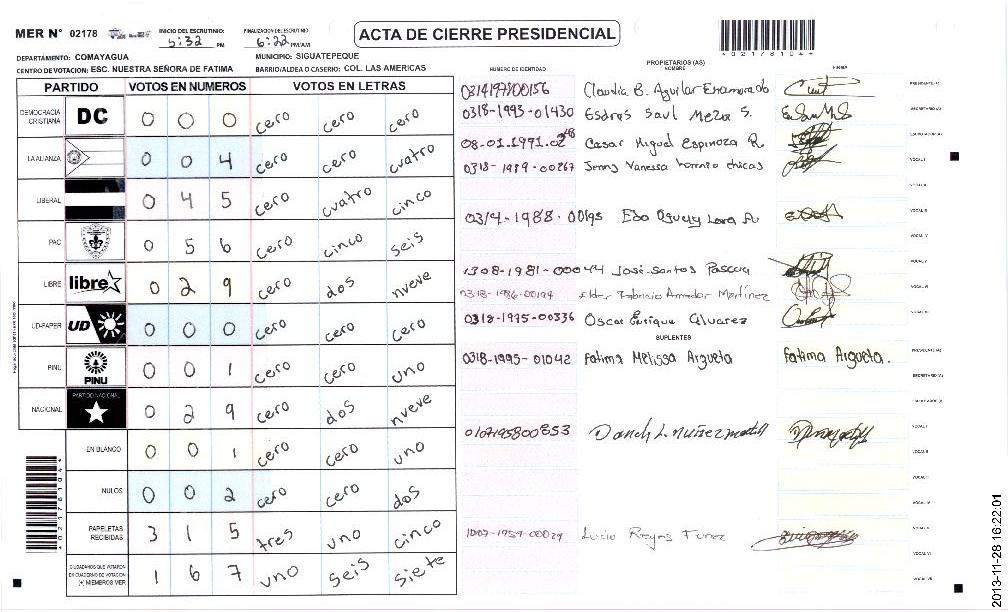 MER N° 02178
INICIO DEL ESCRUTINIO: 5:32 PM
FINALIZACION DEL ESCRUTINIO: 6:22 PM/AM
ACTA DE CIERRE PRESIDENCIAL
4021781044
DEPARTAMENTO: COMAYAGUA
MUNICIPIO: SIGUATEPEQUE
CENTRO DE VOTACION: ESC. NUESTRA SEÑORA DE FATIMA
BARRIO/ALDEA O CASERIO: COL. LAS AMERICAS
PARTIDO VOTOS EN NUMEROS VOTOS EN LETRAS
DEMOCRACIA CRISTIANA DC 0 0 0 cero cero cero
LA ALIANZA 0 0 4 cero cero cuatro
LIBERAL 0 4 5 cero cuatro cinco
PAC 0 5 6 cero cinco seis
LIBRE libre 0 2 9 cero dos nueve
UD-FAPER UD 0 0 0 cero cero cero
PINU PINU 0 0 1 cero cero uno
NACIONAL PARTIDO NACIONAL 0 2 9 cero dos nueve
EN BLANCO 0 0 1 cero cero uno
NULOS 0 0 2 cero cero dos
PAPELETAS RECIBIDAS 3 1 5 tres uno cinco
CIUDADANOS QUE VOTARON EN CUADERNO DE VOTACION (+) MIEMBROS MER 1 6 7 uno seis siete
NUMERO DE IDENTIDAD PROPIETARIOS (AS) NOMBRE FIRMA
Claudia B. Aguilar Enamorado PRESIDENTE(A)
0318-1993-01430 Esdras Saul Meza S. SECRETARIO(A)
08-01.1971.02 Cesar Miguel Espinoza R. ESCRUTADOR(A)
0318-1989-00267 Jenny Vanessa Lorenzo chicas VOCAL I
VOCAL II
0314-1988-00195 VOCAL III
VOCAL IV
1308-1981-00044 José Santos Pascua VOCAL V
Elder Fabricio Amador Martínez VOCAL VI
0318-1975-00336 Oscar Enrique Alvarez VOCAL VII
SUPLENTES
0318-1995-01042 Fatima Melissa Argueta Fatima Argueta. PRESIDENTE(A)
SECRETARIO(A)
ESCRUTADOR(A)
0107195800853 VOCAL I
VOCAL II
VOCAL III
VOCAL IV
Lucio Reyes Funez VOCAL V
VOCAL VI
VOCAL VII
2013-11-28 16:22:01